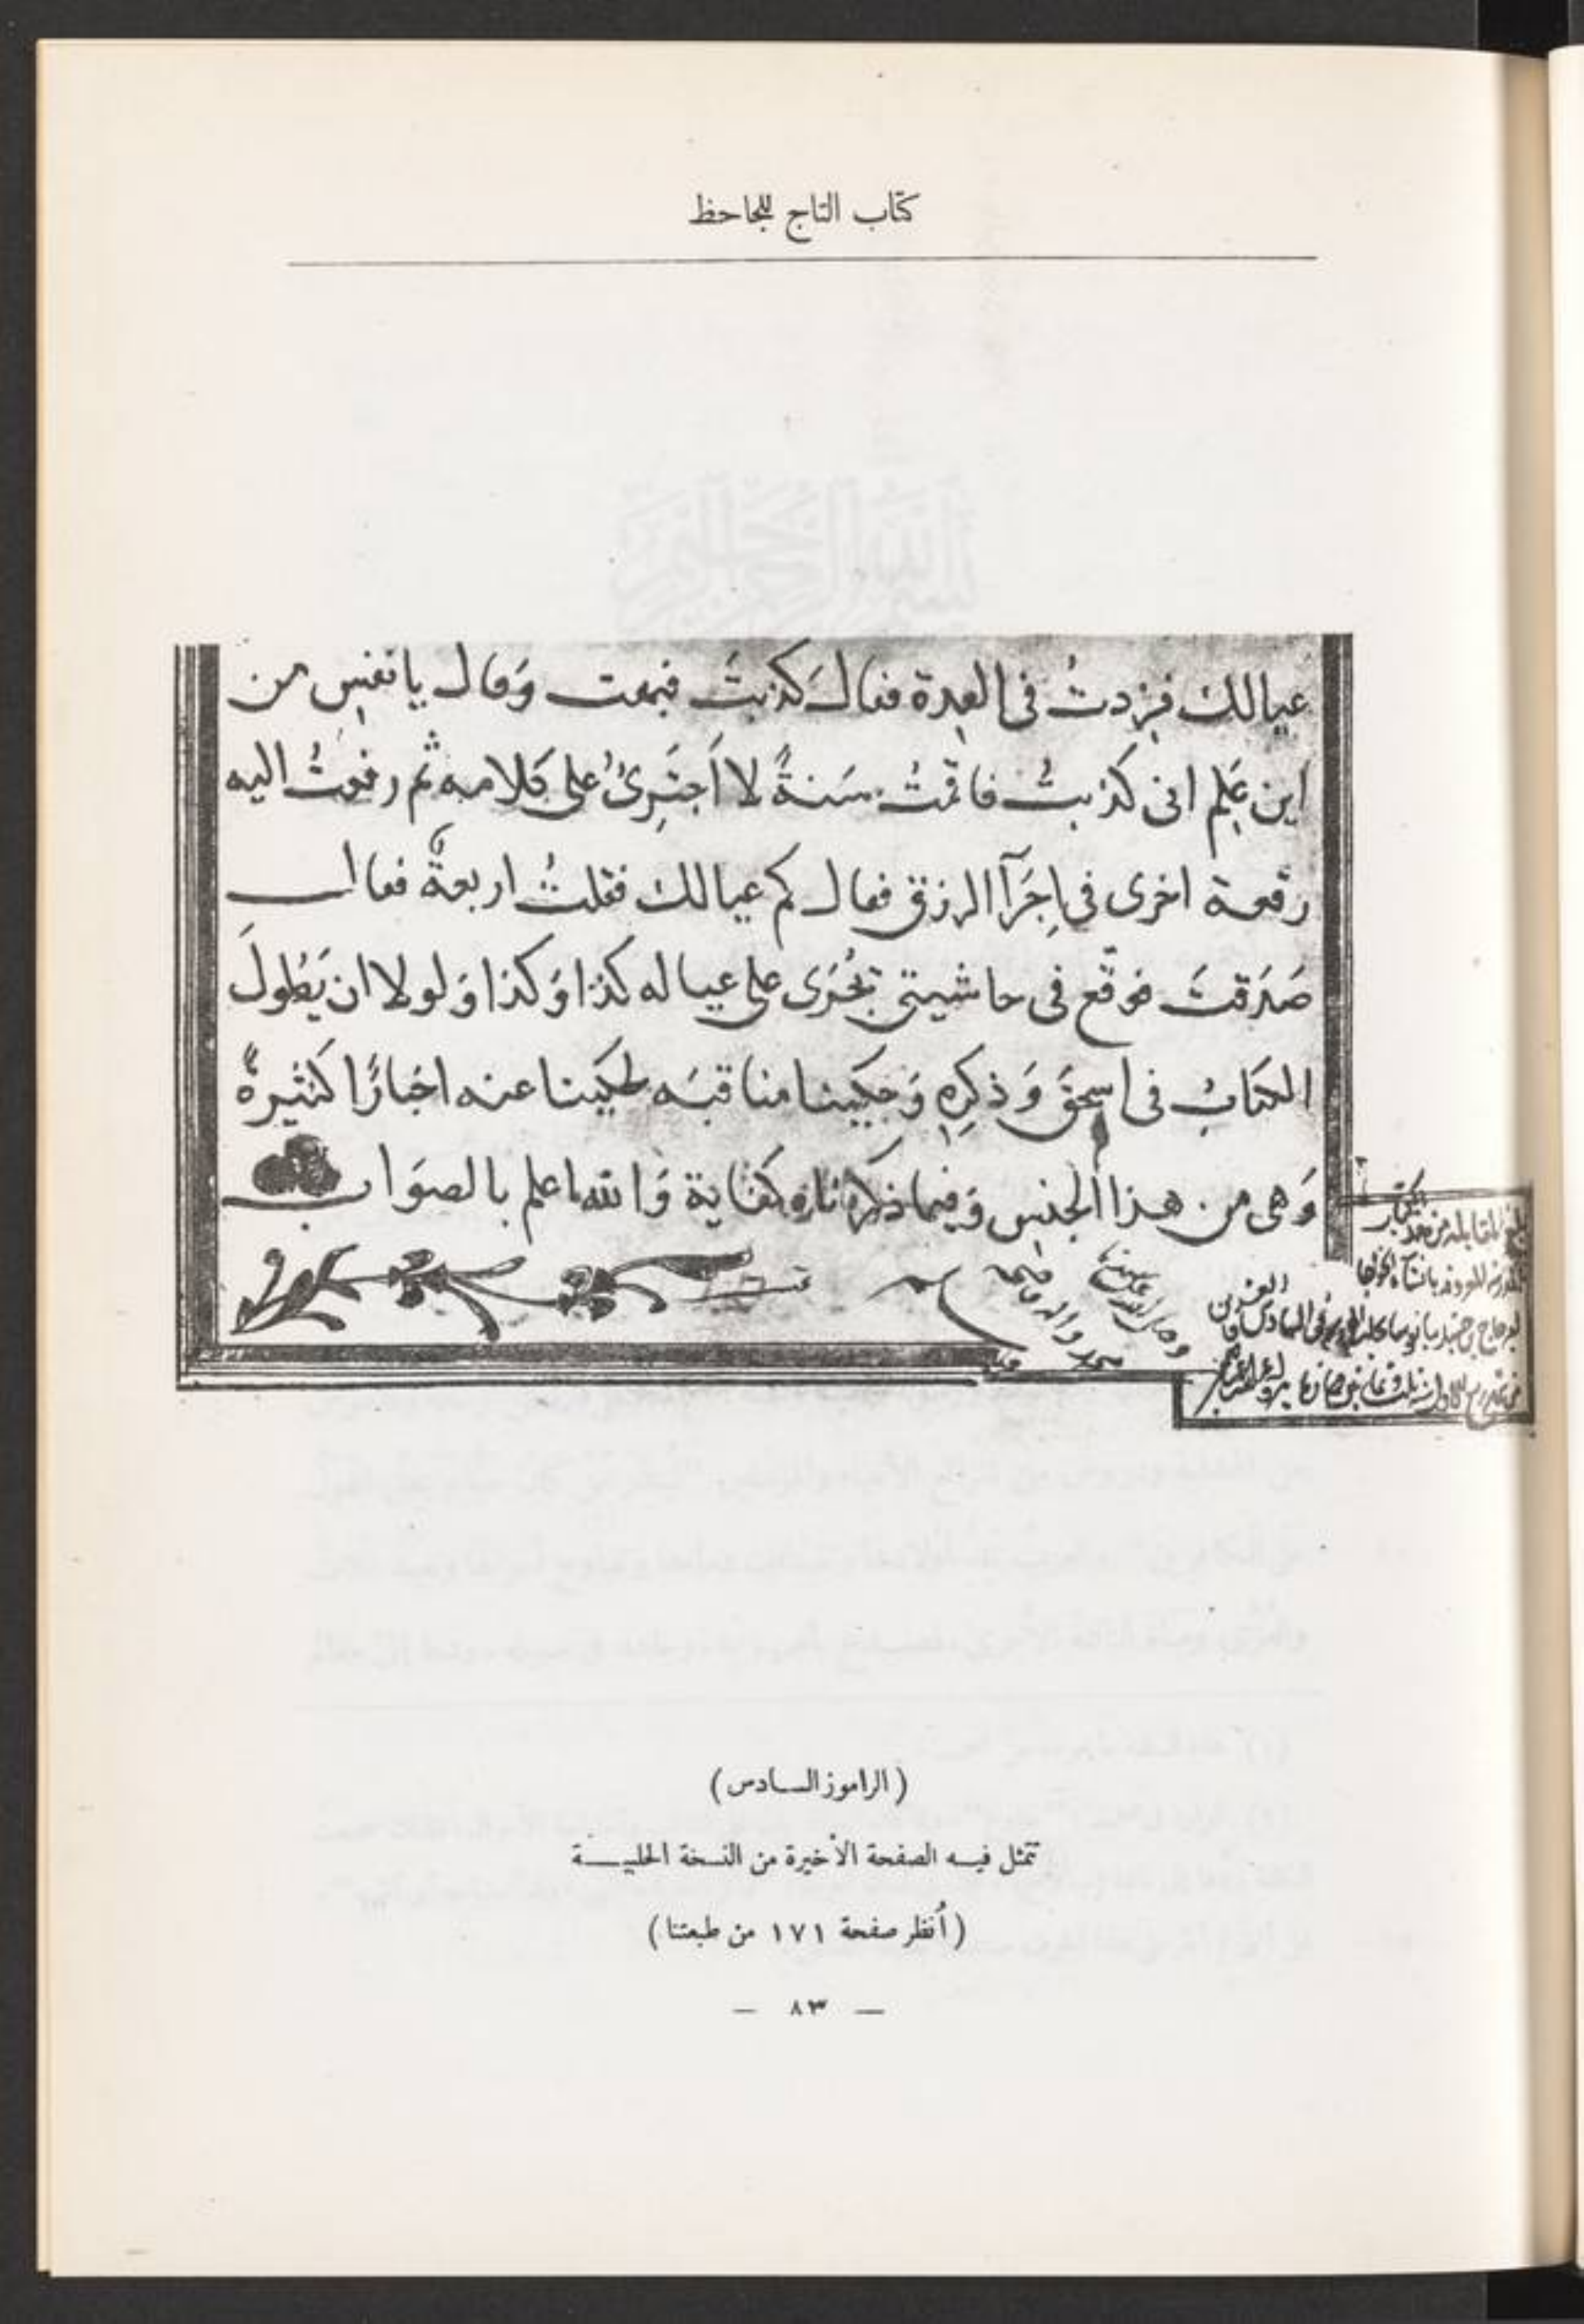 كتاب التاج للجاحظ
عيالك فزدتُ في العِدة فقال كذبتَ فبهت وَقال يا نفسِ من
اين عَلِم انى كذبتُ فاقمْتُ سَنةً لا اَجتَرِئُ على كلامه ثم رفعتُ اليه
رقعة اخرى في اِجرَآ الرزق فقال كم عيالك فقلتُ اربعةٌ فقال
صَدَقتَ فوَقّع في حاشيتى يُجْرَى على عياله كذا وَكذا وَلولا ان يَطُولَ
الكتابُ في اسحقَ وَذكرِهِ وَحكَينا مناقبَه لحكَينا عنه اخبارًا كثيرةً
وَهى من هذا الجنسِ وَفيما ذكرناه كفاية وَالله اعلم بالصوَاب
تمت
(الراموز السادس)
تتمثل فيه الصفحة الأخيرة من النسخة الحلبية
(أُنظر صفحة ١٧١ من طبعتنا)
— ٨٣ —